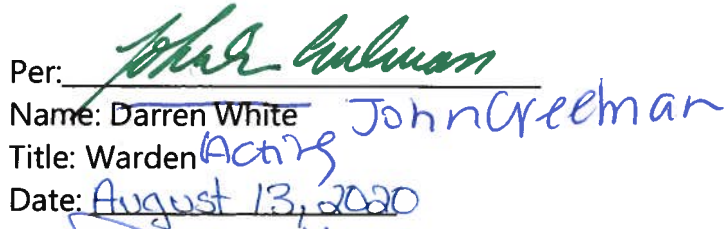 Per: John Creelman
Name: Darren White John Creelman
Title: Warden Acting
Date: August 13, 2020